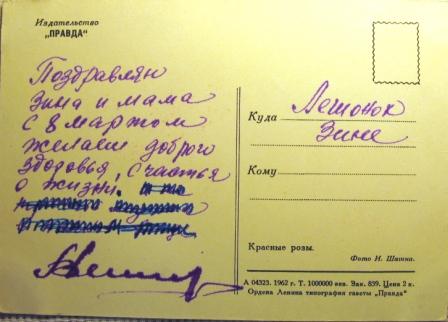 Издательство
„ПРАВДА“
Поздравляю
Зина и мама
с 8 мартом
желаем доброго
здоровья, счастья
о жизни.
Куда Лешонок
Зине
Кому
Красные розы.
Фото Н. Шагина.
А 04323. 1962 г. Т. 1000000 экз. Зак. 839. Цена 2 к.
Ордена Ленина типография газеты „Правда“